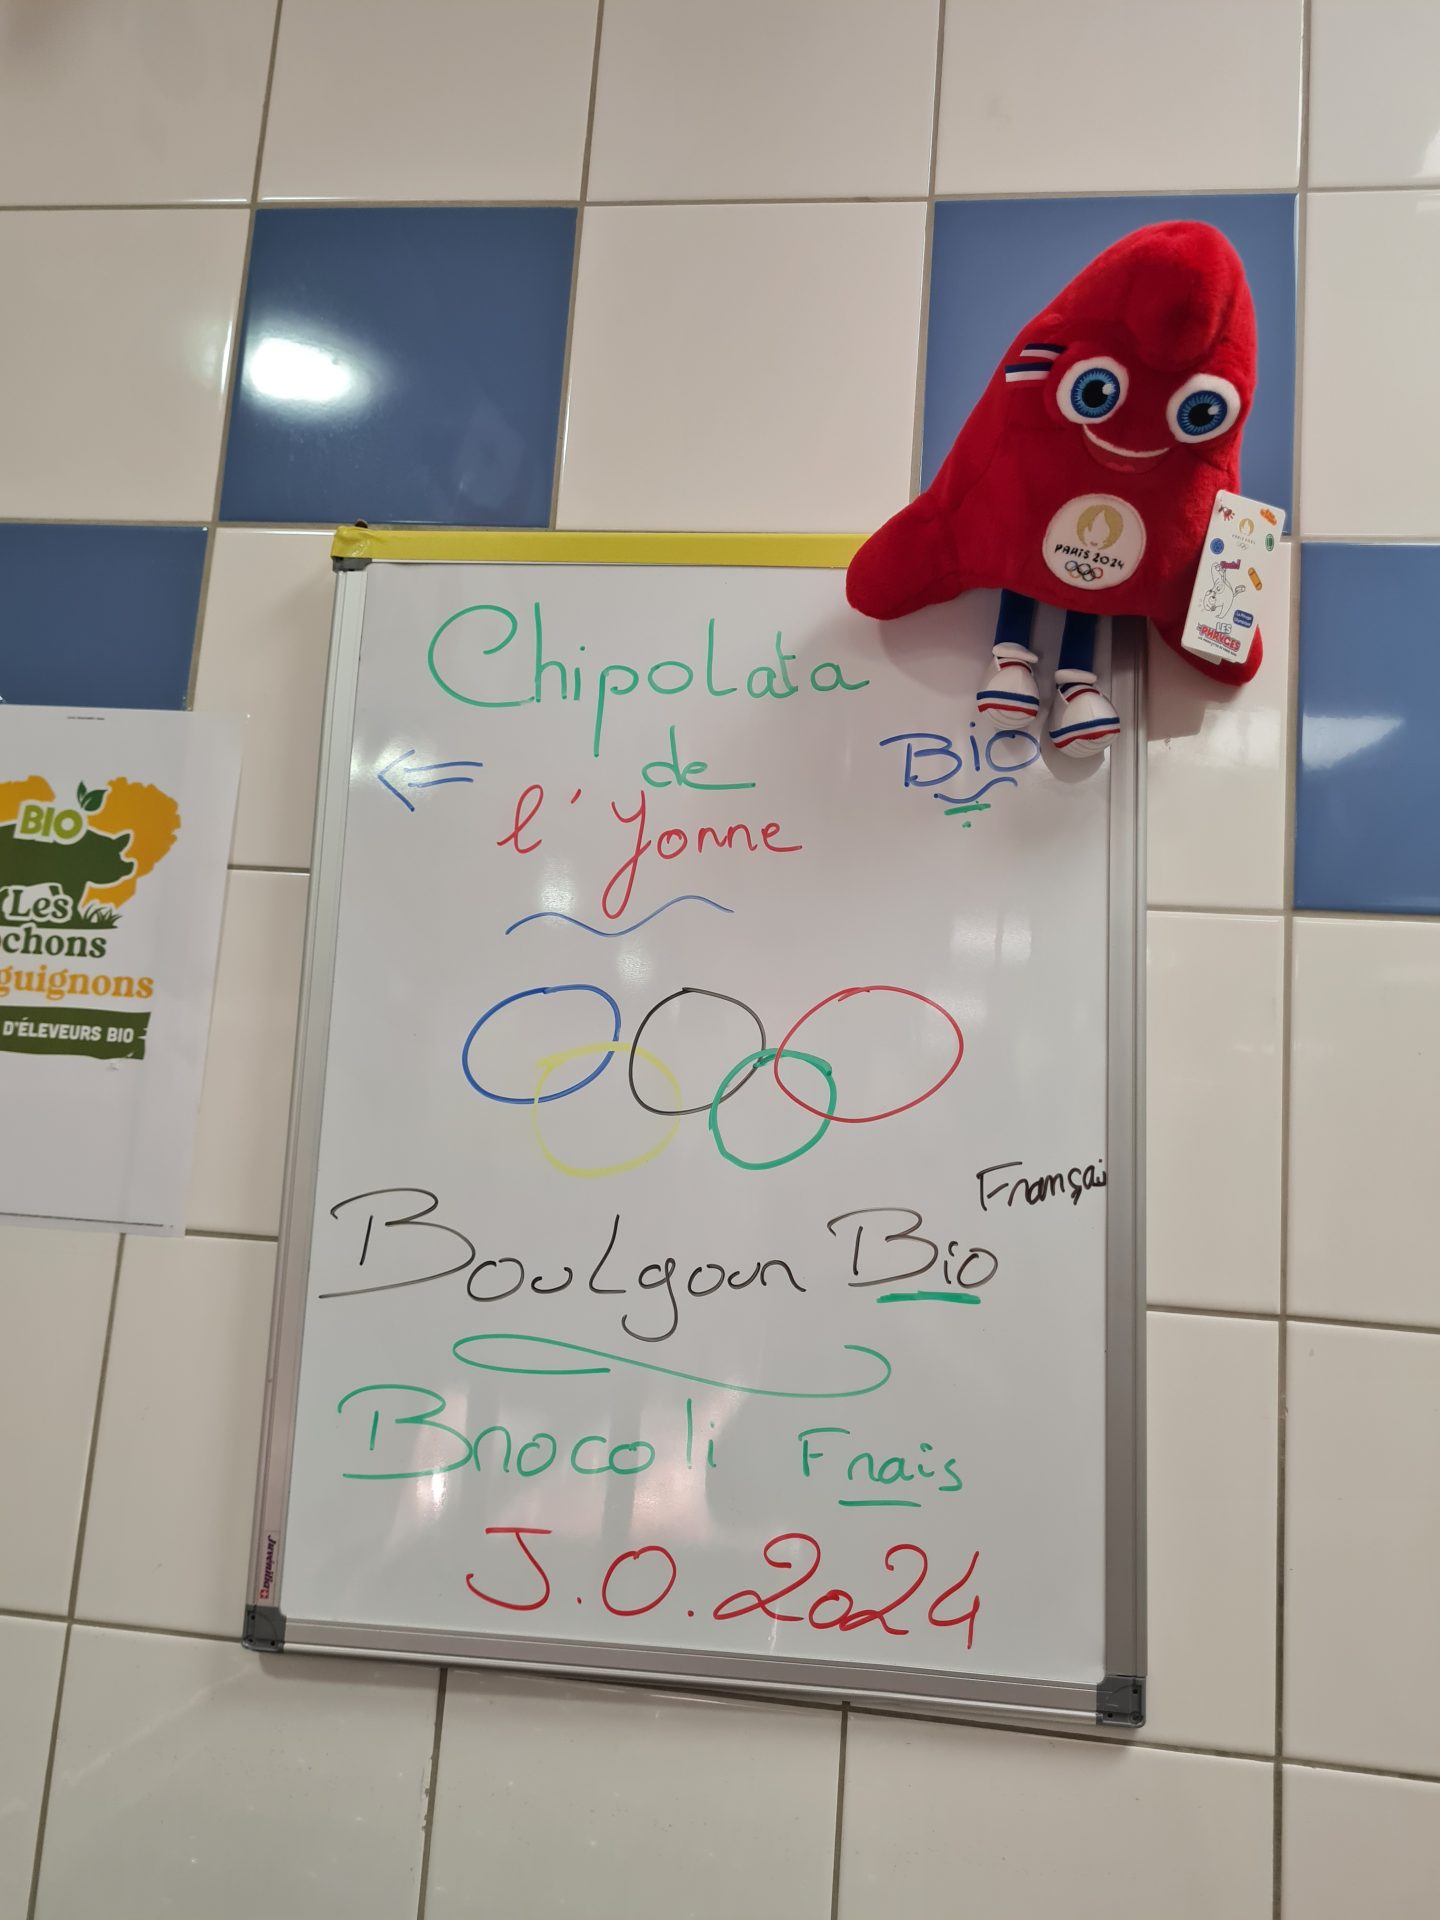 PARIS 2024
LES
PHRYGES
Chipolata
de
Bio
l'Yonne
BIO
Les
chons
guignons
D'ÉLEVEURS BIO
Françai
Boulgour Bio
Brocoli Frais
J.O.2024
Juvenilia